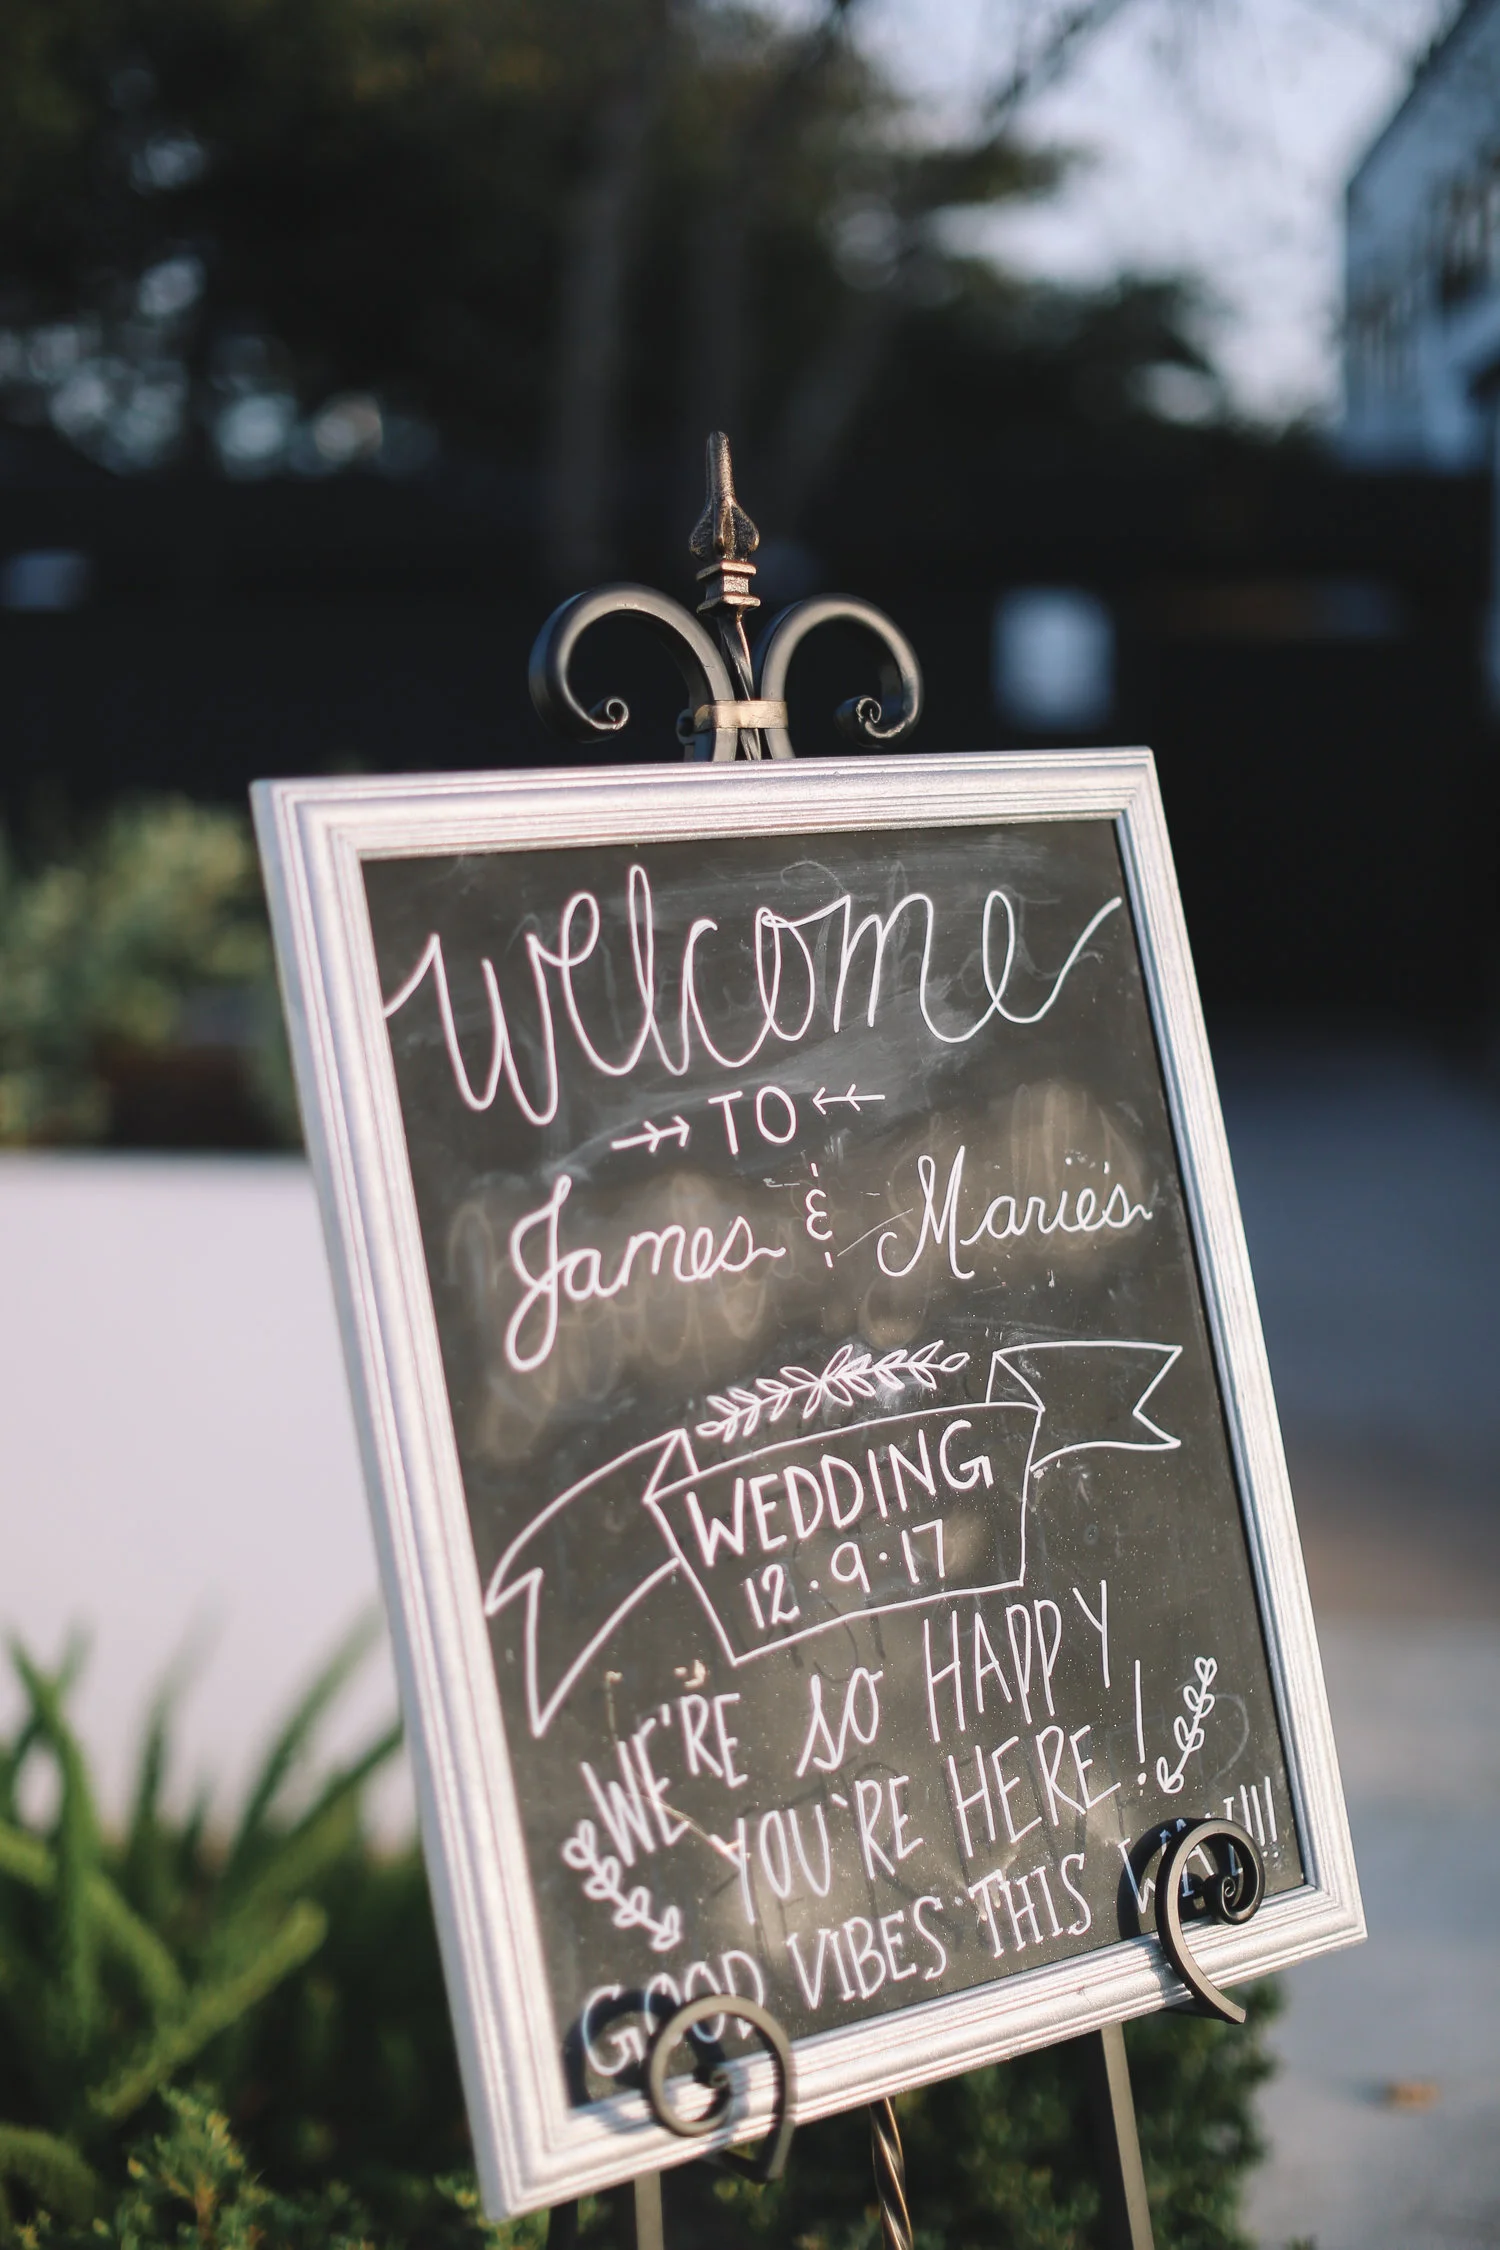 welcome
TO
James & Marie's
WEDDING
12.9.17
WE'RE so HAPPY
YOU'RE HERE!
GOOD VIBES THIS WAY!!!